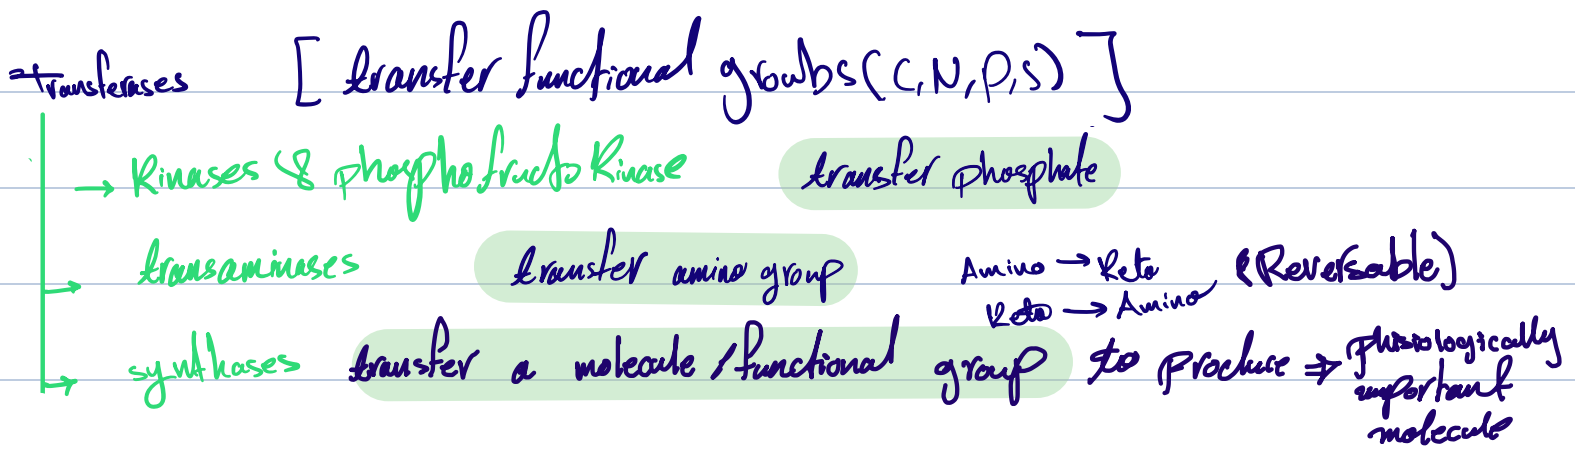 Transferases [transfer functional groubs (C, N, P, S)]
→ Kinases & phosphofructokinase transfer phosphate
→ transaminases transfer amino group Amino → Keto (Reversable)
Keto → Amino
→ synthases transfer a molecule / functional group to produce ⇒ phisiologically
important
molecule